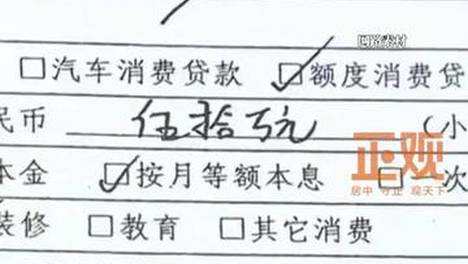 网络素材
□汽车消费贷款 ☑额度消费贷
民币 伍拾万元 (小
正观
居中 守正 观天下
本金 ☑按月等额本息 □ 次
装修 □教育 □其它消费